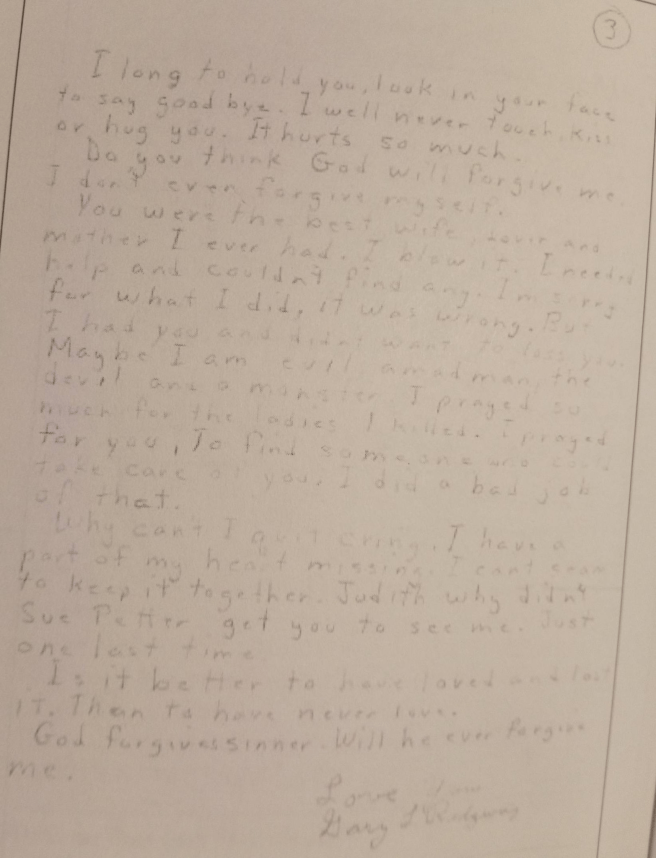 3
I long to hold you, look in your face
to say good bye. I well never touch, kiss
or hug you. It hurts so much.
Do you think God will forgive me
I don't even forgive myself.
You were the best wife, lover and
mother I ever had. I blow it. I needed
help and couldn't find any. I'm sorry
for what I did, it was wrong. But
I had you and didnt want to loss you.
Maybe I am evil, a mad man, the
devil and a monster. I prayed so
much for the ladies I killed. I prayed
for you, To find someone who could
take care of you. I did a bad job
of that.
Why cant I quit cring. I have a
part of my heart missing. I cant seam
to keep it together. Judith why didn't
Sue Petter get you to see me. Just
one last time
Is it better to have loved and lost
it. Then to have never love.
God forgives sinner. Will he ever forgive
me.
Love
Gary L Ridgway